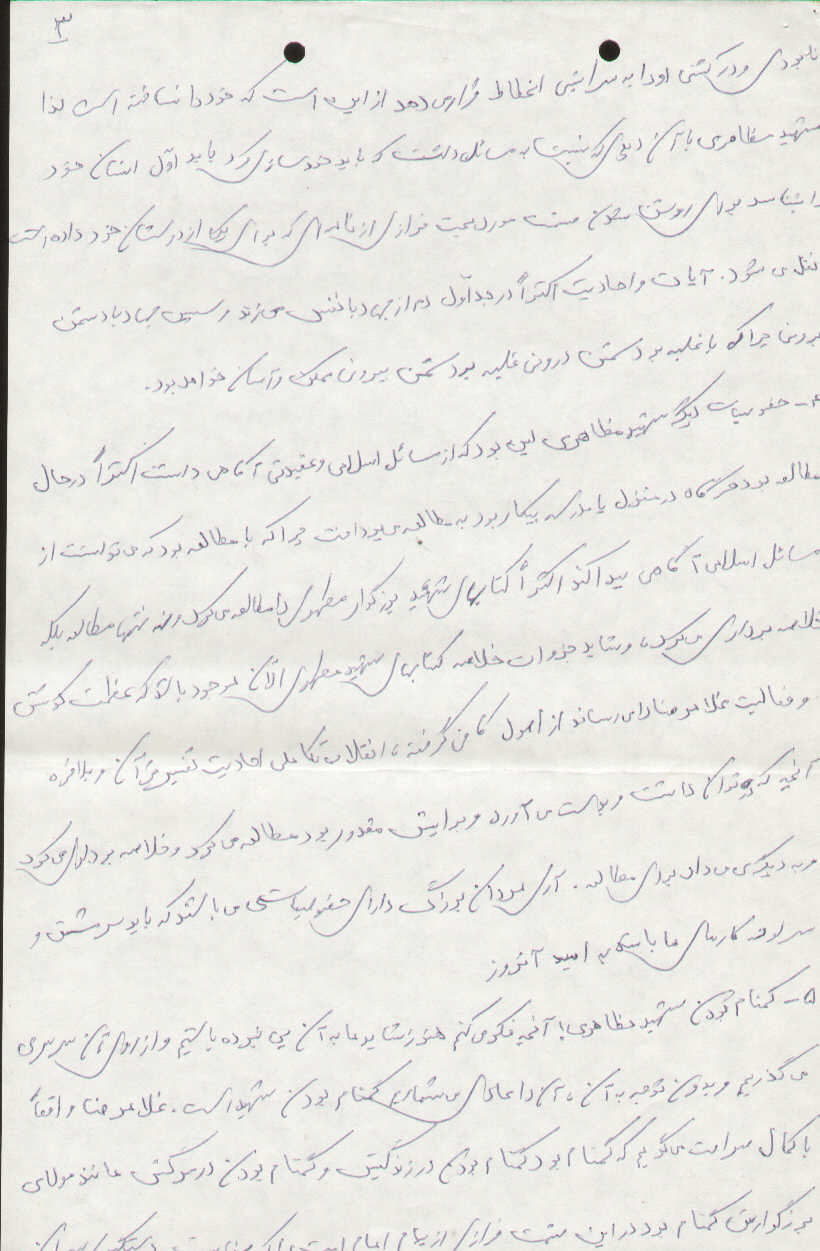 ۳
نابودی و درکشتی او را به سراشیبی انحطاط قرار می دهد از این است که خود را نساخته است لذا
شهید مظاهری با آن دیدی که نسبت به مسائل داشت که باید خودسازی کرد باید اول انسان خود
را بشناسد برای روشن شدن قسمت مورد بحث فرازی از نامه ای که برای یکی از دوستان خود داده است
نقل می شود. آیات و احادیث اکثراً در جه اول دم از جهاد با نفس می زند و سپس جهاد با دشمن
بیرونی چرا که با غلبه بر دشمن درونی غلبه بر دشمن بیرونی ممکن و آسان خواهد بود.
۴- خصوصیات دیگر شهید مظاهری این بود که از مسائل اسلامی و عقیدتی آگاهی داشت اکثراً در حال
مطالعه بود هرگاه در منزل یا مدرسه بیکار بود به مطالعه می پرداخت چرا که با مطالعه بود که می توانست از
مسائل اسلامی آگاهی پیدا کند اکثراً کتابهای شهید بزرگوار مطهری را مطالعه می کرد و نه تنها مطالعه بلکه
خلاصه برداری می کرد، و شاید جزوات خلاصه کتابهای شهید مطهری الآن موجود باشد که عظمت کوشش
و فعالیت غلامرضا را می رساند از اصول کافی گرفته، انقلاب تکاملی احادیث تفسیر قرآن و بالاخره
آنچه که می توان داشت و بدست می آورد و برایش مقدور بود مطالعه می کرد و خلاصه برداری می کرد
و به دیگری می داد برای مطالعه. آری مردان بزرگ دارای خصوصیاتی می باشند که باید سرمشق و
سرلوحه کارهای ما باشد به امید آنروز
۵- گمنام بودن شهید مظاهری! آنچه فکر می کنم هنوز شاید ما به آن پی نبرده باشیم و از روی آن سرسری
می گذریم و بدون توجه به آن، آن را عادی می شماریم گمنام بودن شهید است. غلامرضا واقعاً
با کمال صراحت می گویم که گمنام بود گمنام بودن در زندگیش و گمنام بودن در مرگش مانند مولای
بزرگوارش گمنام بود در این قسمت فرازی از پیام امام است